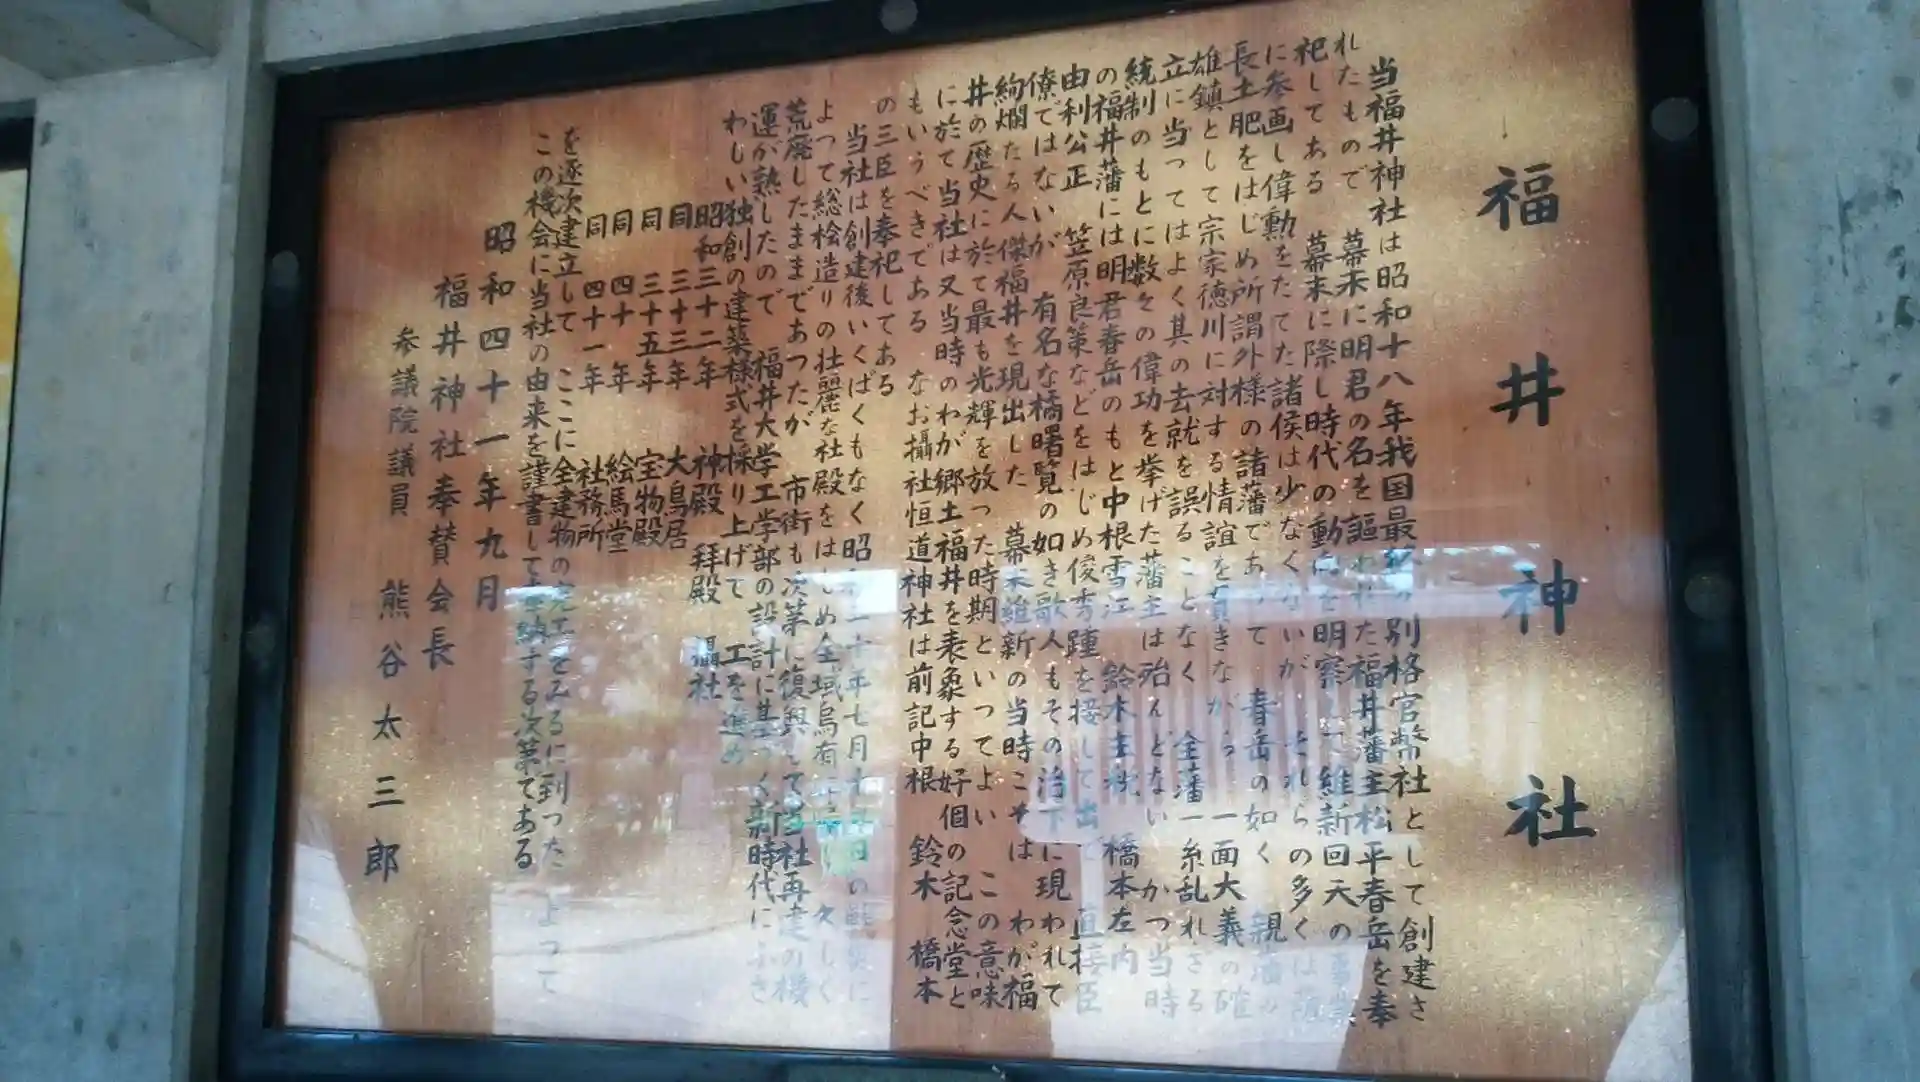 福井神社
当福井神社は昭和十八年我国最終の別格官幣社として創建さ
れたもので　幕末に明君の名を謳われた福井藩主松平春岳を奉
祀してある　幕末に際し時代の動向を明察して維新回天の事業
に参画し偉勳をたてた諸侯は少なくないが　それらの多くは薩
長土肥をはじめ所謂外様の諸藩であつて　春岳の如く　親藩の
雄鎮として宗家徳川に対する情誼を貫きながら　一面大義の確
立に当ってはよく其の去就を誤ることなく　全藩一糸乱れざる
統制のもとに数々の偉功を挙げた藩主は殆んどない　かつ当時
の福井藩には明君春岳のもと中根雪江　鈴木主税　橋本左内
由利公正　笠原良策などをはじめ俊秀踵を接して出で　直接臣
僚ではないが　有名な橘曙覧の如き歌人もその治下に現われて
絢爛たる人傑福井を現出した　幕末維新の当時こそは　わが福
井の歴史に於て最も光輝を放った時期といつてよい　この意味
に於て当社は又当時のわが郷土福井を表象する好個の記念堂と
もいうべきである　なお摂社恒道神社は前記中根　鈴木　橋本
の三臣を奉祀してある
当社は創建後いくばくもなく昭和二十年七月十九日の戦災に
よつて総桧造りの壮麗な社殿をはじめ全域烏有に帰し　久しく
荒廃したままであつたが　市街も次第に復興して当社再建の機
運が熟したので　福井大学工学部の設計に基づく新時代にふさ
わしい独創の建築様式を採り上げて　工を進め
昭和三十二年　神殿　拝殿　攝社
同　三十三年　大鳥居
同　三十五年　宝物殿
同　四十年　絵馬堂
同　四十一年　社務所
を逐次建立して　ここに全建物の完工をみるに到った　よつて
この機会に当社の由来を謹書して奉納する次第である
昭和四十一年九月
福井神社奉賛会長
参議院議員　熊谷太三郎